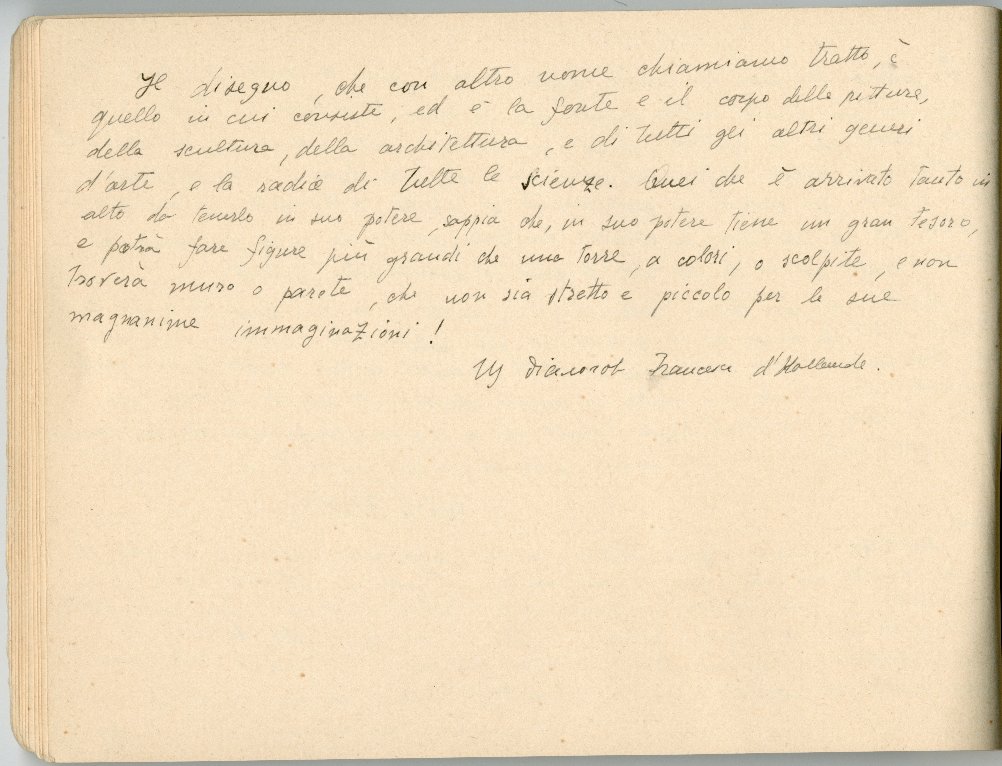 Il disegno, che con altro nome chiamiamo tratto, è
quello in cui consiste, ed è la fonte e il corpo della pittura,
della scultura, della architettura, e di tutti gli altri generi
d'arte, e la radice di tutte le scienze. Quei che è arrivato tanto in
alto da tenerlo in suo potere, sappia che, in suo potere tiene un gran tesoro,
e potrà fare figure più grandi che una torre, a colori, o scolpite, e non
troverà muro o parete, che non sia stretto e piccolo per le sue
magnanime immaginazioni!
Из диалогов Francesco d'Hollande.